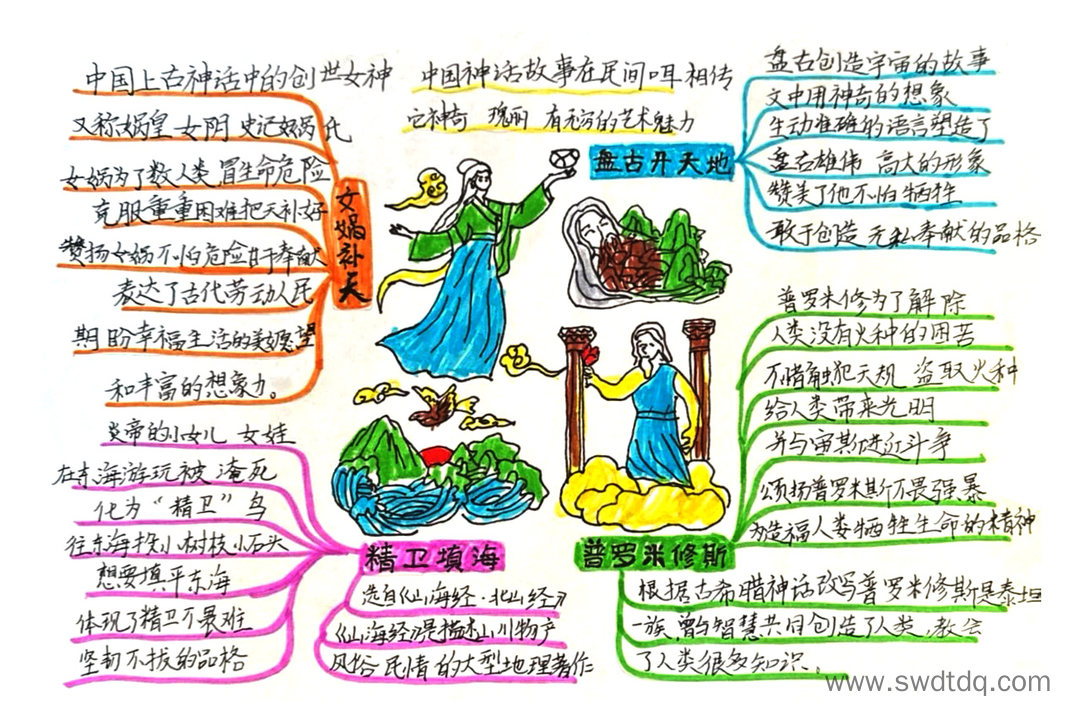 中国上古神话中的创世女神
又称娲皇 女阴 史记女娲氏
女娲为了救人类 冒生命危险
克服重重困难把天补好
赞扬女娲不怕危险甘于奉献
表达了古代劳动人民
期盼幸福生活的美好愿望
和丰富的想象力。
女娲补天
中国神话故事在民间口耳相传
它神奇 瑰丽 有无穷的艺术魅力
盘古开天地
盘古创造宇宙的故事
文中用神奇的想象
生动准确的语言塑造了
盘古雄伟 高大的形象
赞美了他不怕牺牲
敢于创造 无私奉献的品格
炎帝的小女儿 女娃
在东海游玩被 淹死
化为“精卫”鸟
往东海投小树枝小石头
想要填平东海
体现了精卫不畏难
坚韧不拔的品格
精卫填海
选自《山海经·北山经》
《山海经》是描述山川物产
风俗 民情 的大型地理著作
普罗米修为了解除
人类没有火种的困苦
不惜触犯天规 盗取火种
给人类带来光明
并与宙斯进行斗争
颂扬普罗米斯不畏强暴
为造福人类牺牲生命的精神
普罗米修斯
根据古希腊神话改写普罗米修斯是泰坦
一族,曾与智慧共同创造了人类,教会
了人类很多知识.
www.swdtdq.com